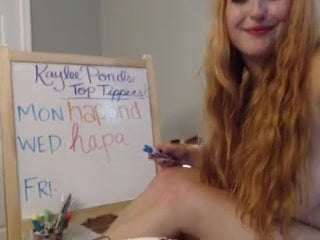 Kaylee Pond's
Top Tippers!
MON: hapond
WED: hapa
FRI: